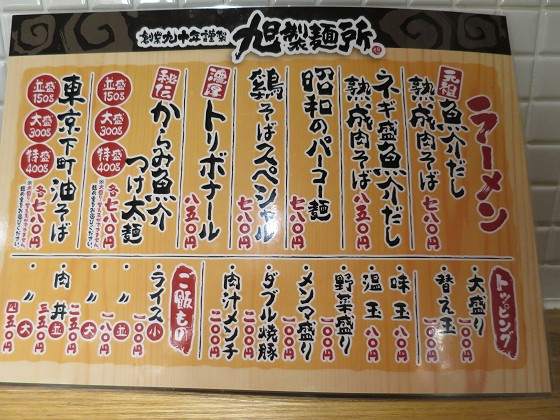 創業九十年謹製 旭製麺所
ラーメン
元祖 魚介だし
熟成肉そば 七八〇円
ネギ盛魚介だし
熟成肉そば 八五〇円
昭和のパーコー麺 七八〇円
鶏そばスペシャル 七八〇円
濃厚 トリボナール 八五〇円
秘伝 からみ魚介
つけ太麺
並盛150g 大盛300g 特盛400g
各七八〇円
東京下町油そば
並盛150g 大盛300g 特盛400g
各七八〇円
トッピング
・大盛り 一〇〇円
・替え玉 一〇〇円
・味玉 一〇〇円
・温玉 八〇円
・野菜盛り 一〇〇円
・メンマ盛り 一〇〇円
・ダブル焼豚 二〇〇円
・肉汁メンチ 二〇〇円
ご飯もの
・ライス小 一〇〇円
・〃並 一八〇円
・〃大 二五〇円
・肉丼並 三五〇円
・〃大 四五〇円